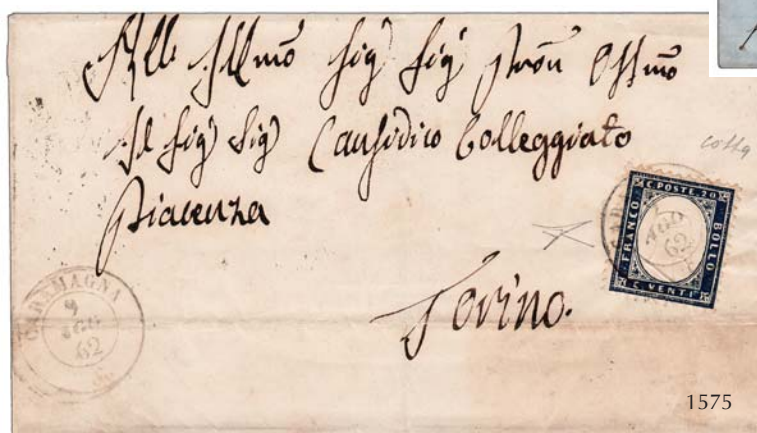 All Illmo Sig Sig Pron Ossmo
Il Sig Sig Causidico Colleggiato
Piacenza
Torino.
C. POSTE. 20
FRANCO
BOLLO
C. VENTI
62
CARAMAGNA
9
AGO
62
1575